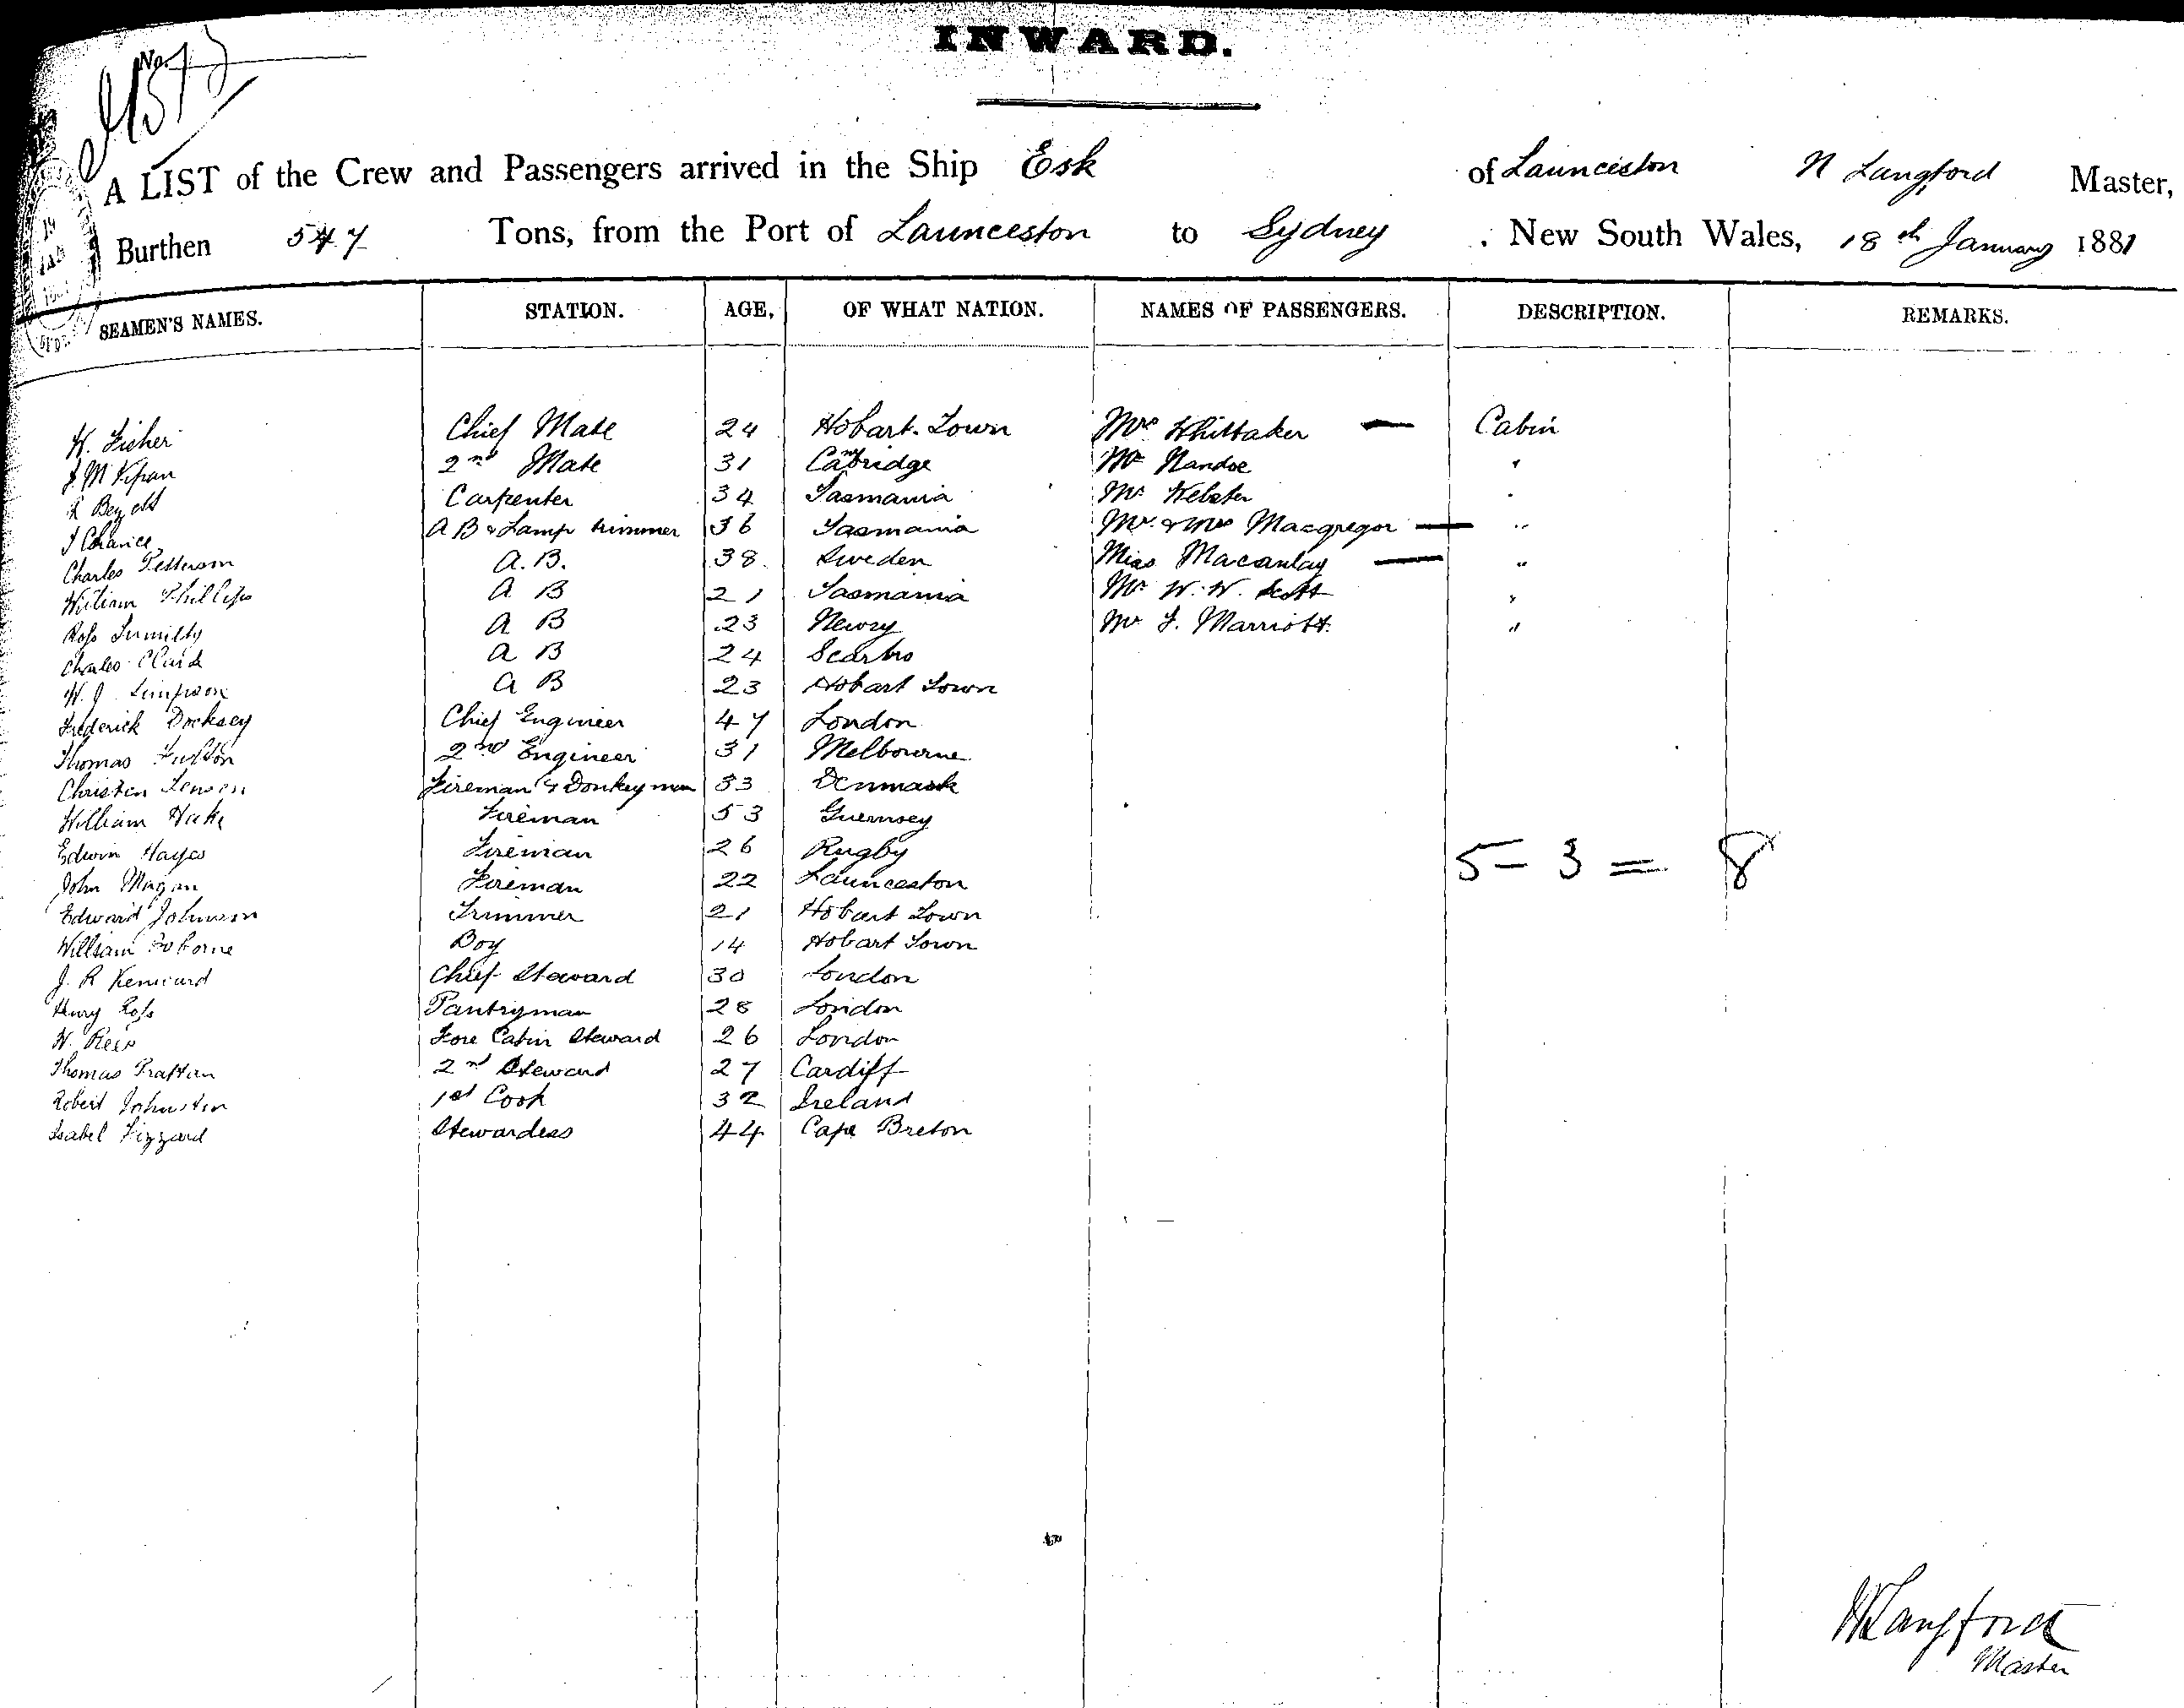 INWARD.
No.
A LIST of the Crew and Passengers arrived in the Ship Esk of Launceston N Langford Master,
Burthen 547 Tons, from the Port of Launceston to Sydney, New South Wales, 18th January 1881
SEAMEN'S NAMES. STATION. AGE. OF WHAT NATION. NAMES OF PASSENGERS. DESCRIPTION. REMARKS.
H. Fisher Chief Mate 24 Hobart Town Mrs Whittaker — Cabin
2nd Mate 31 Cambridge Mr "
Carpenter 34 Tasmania Mr Webster "
J Chance A B & Lamp trimmer 36 Tasmania Mr & Mrs Macgregor — "
Charles Petterson A. B. 38 Sweden Miss Macaulay — "
William Phillips A B 21 Tasmania Mr W. W. Scott "
Ross A B 23 Newry Mr F. Marriott "
Charles A B 24 Scarbro
W. J. Simpson A B 23 Hobart Town
Frederick Docksey Chief Engineer 47 London
Thomas Fulton 2nd Engineer 31 Melbourne
Christen Jensen Fireman & Donkeyman 33 Denmark
William Hake Fireman 53 Guernsey
Edwin Hayes Fireman 26 Rugby
5 – 3 = 8
John Fireman 22 Launceston
Edward Johnson Trimmer 21 Hobart Town
William Osborne Boy 14 Hobart Town
J. R Kenward Chief Steward 30 London
Henry Ross Pantryman 28 London
W. Rees Fore Cabin Steward 26 London
Thomas Prattan 2nd Steward 27 Cardiff
Robert Johnston 1st Cook 32 Ireland
Isabel Fizzard Stewardess 44 Cape Breton
Langford
Master